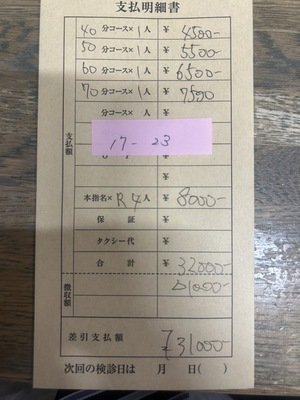 支払明細書
40分コース×1人 ¥ 4500-
50分コース×1人 ¥ 5500-
60分コース×1人 ¥ 6500-
70分コース×1人 ¥ 7500
分コース× 人 ¥
17-23
支払額
本指名×R4人 ¥ 8000-
保証 ¥
タクシー代 ¥
合計 ¥ 32000-
徴収額
△1000-
差引支払額 ¥31000-
次回の検診日は 月 日( )